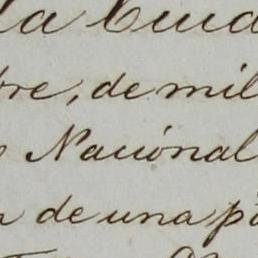 la Ciud
bre, de mil
Nacional
de una pa